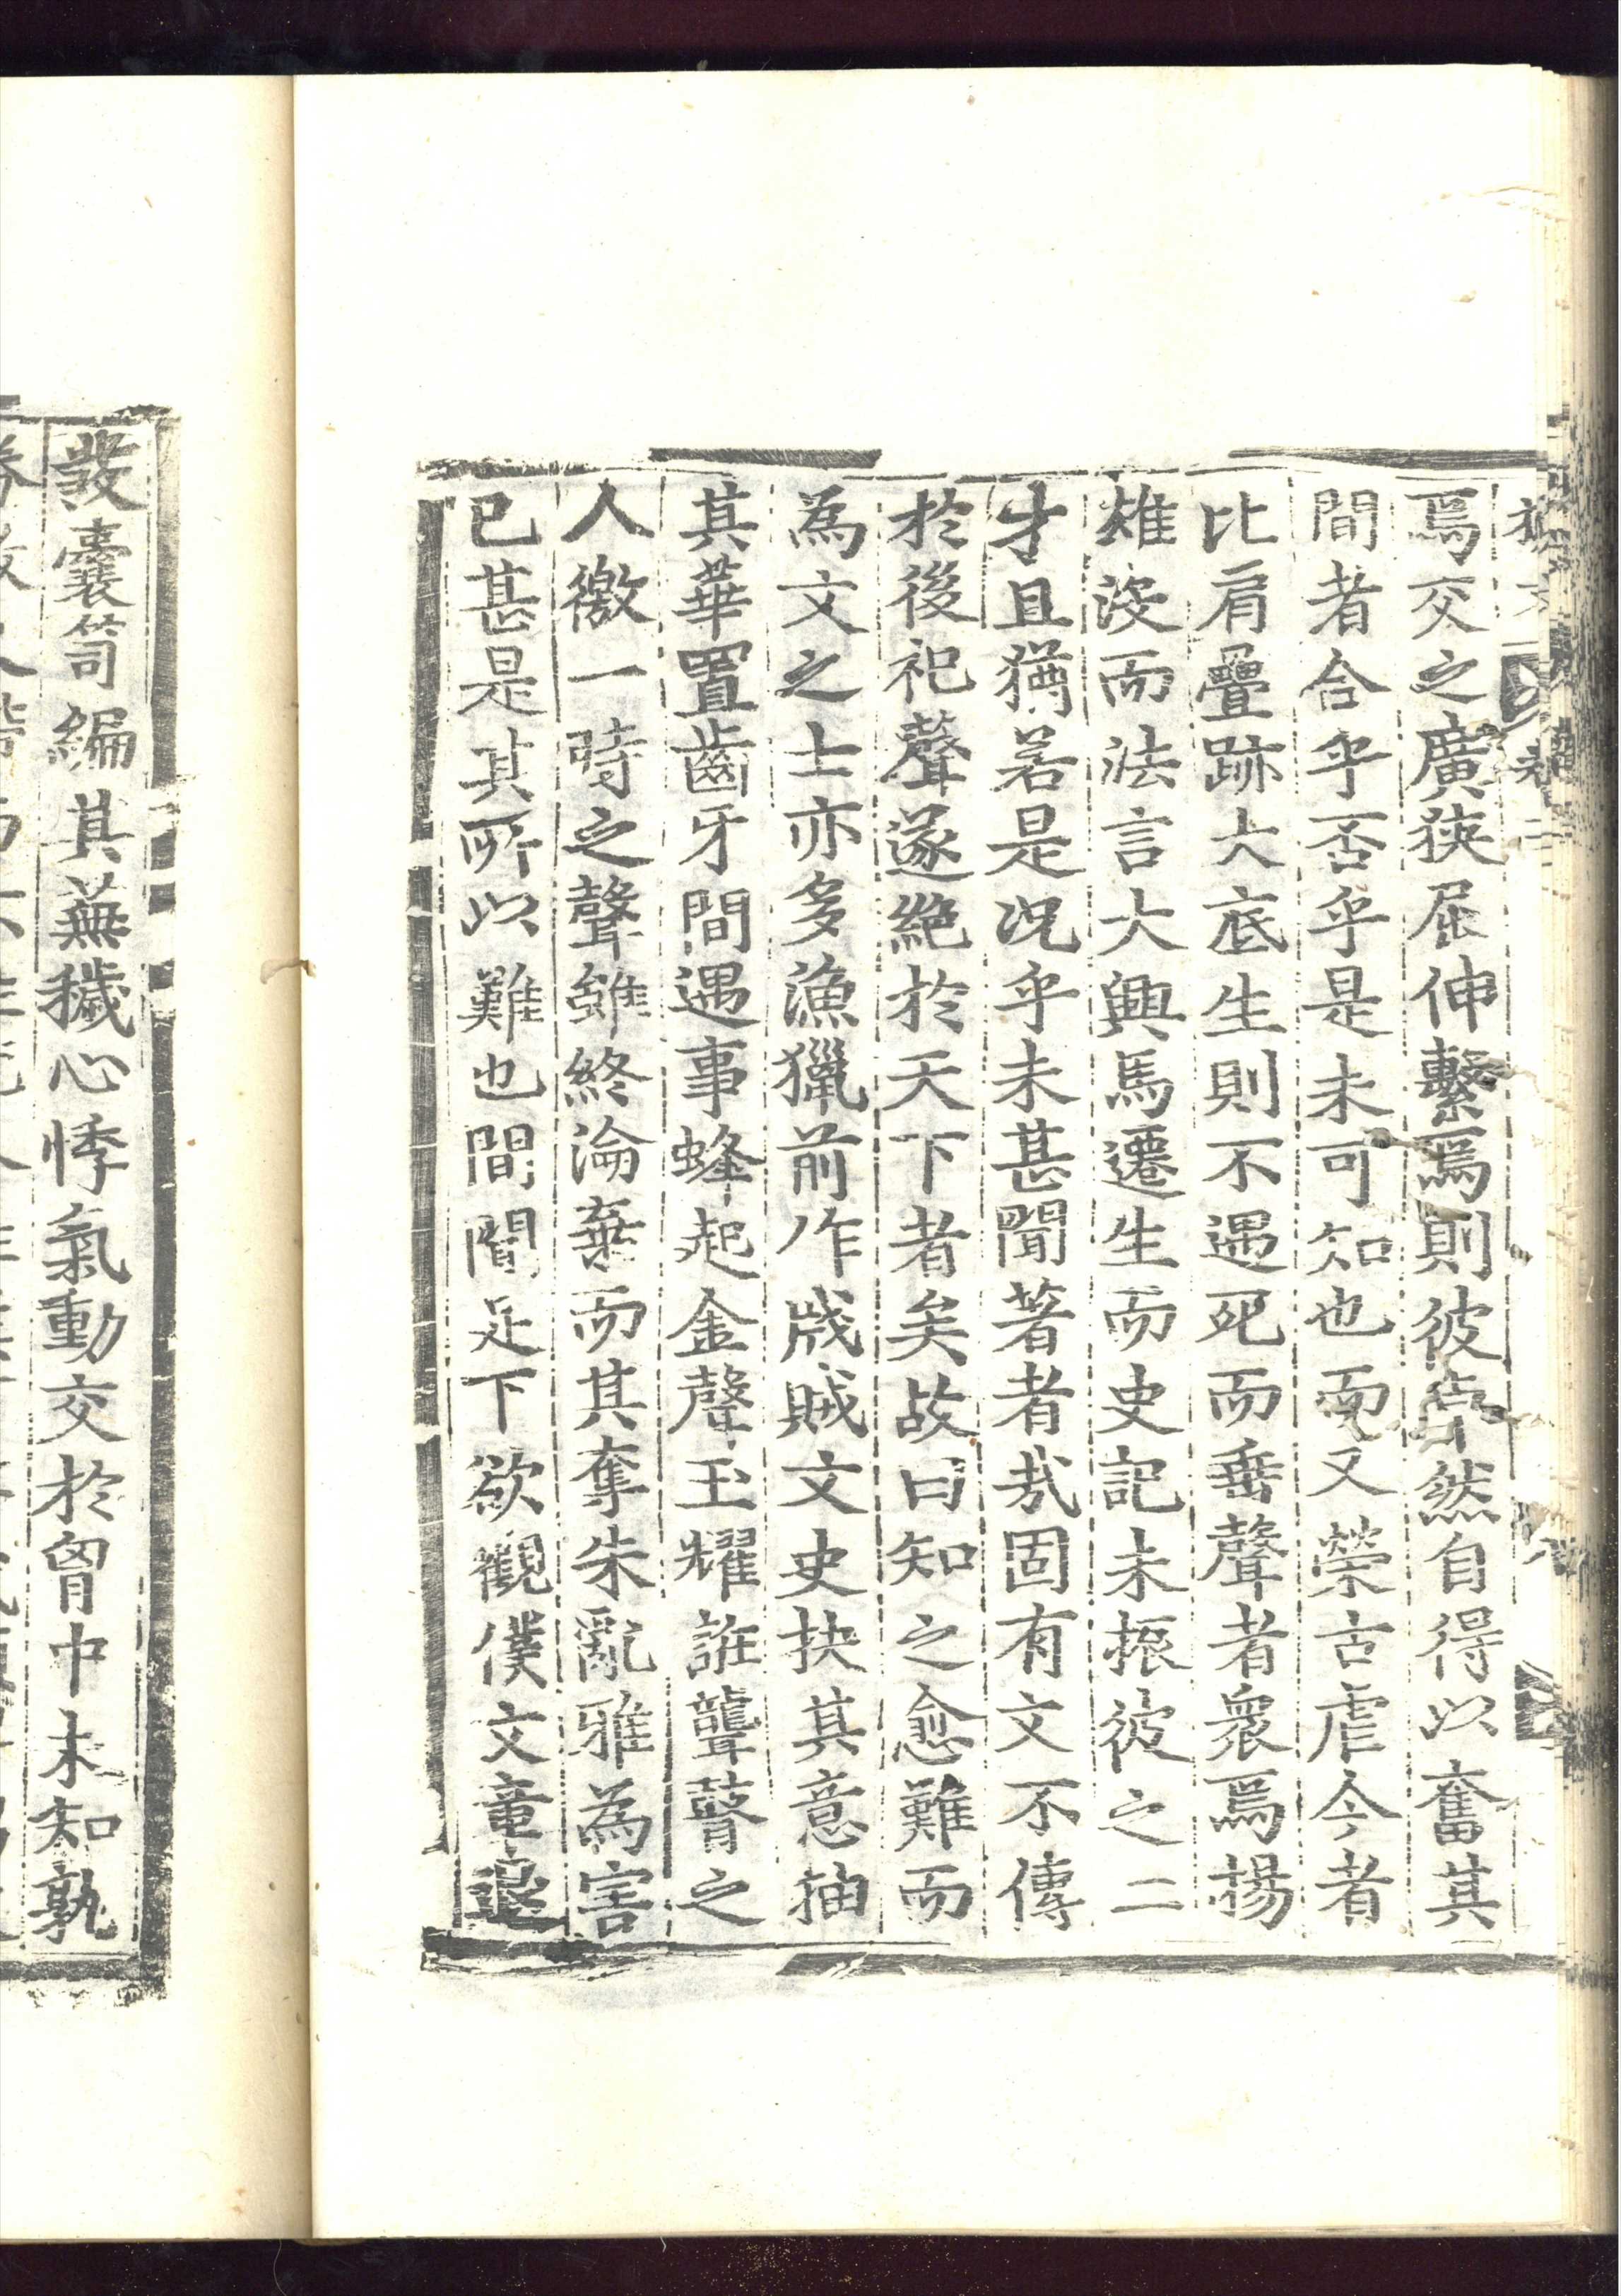 焉交之廣狹屈伸繫焉則彼卓然自得以奮其
間者合乎否乎是未可知也而又榮古虐今者
比肩疊跡大底生則不遇死而垂聲者衆焉揚
雄没而法言大興馬遷生而史記未振彼之二
才且猶若是况乎未甚聞著者㢤固有文不傳
於後祀聲遂絶於天下者矣故曰知之愈難而
為文之士亦多漁獵前作戕賊文史抉其意抽
其華置齒牙間遇事蜂起金聲玉耀誑聾瞽之
人徼一時之聲雖終淪棄而其奪朱亂雅為害
已甚是其所以難也間聞足下欲觀僕文章退
發囊笥編其蕪穢心悸氣動交於胷中未知孰